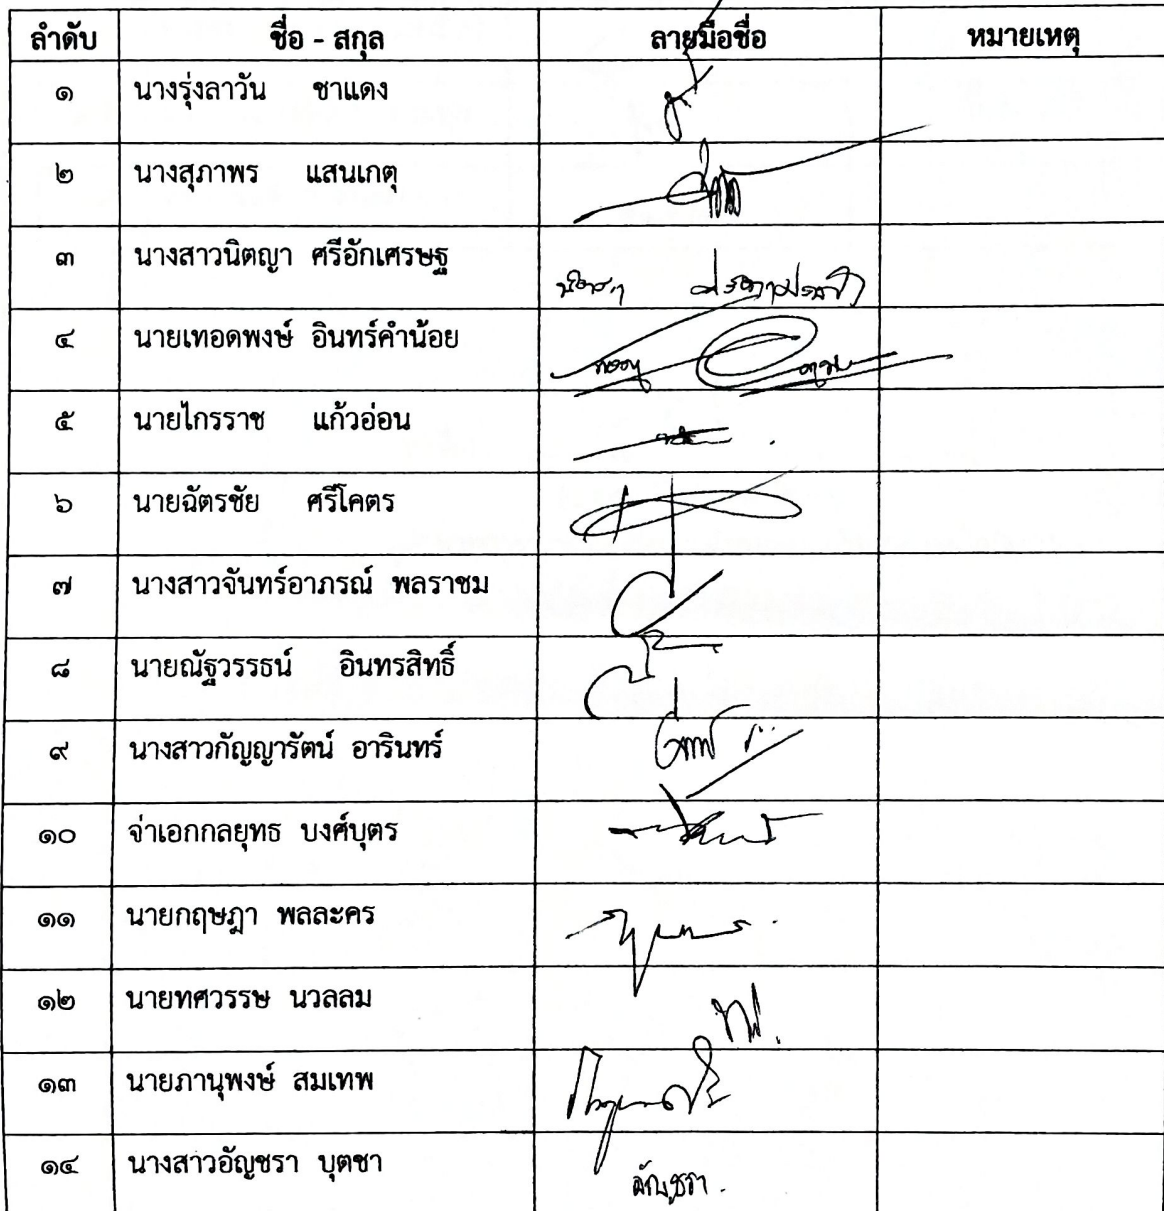 ลำดับ ชื่อ - สกุล ลายมือชื่อ หมายเหตุ
๑ นางรุ่งลาวัน ชาแดง
๒ นางสุภาพร แสนเกตุ
๓ นางสาวนิตญา ศรีอักเศรษฐ
๔ นายเทอดพงษ์ อินทร์คำน้อย
๕ นายไกรราช แก้วอ่อน
๖ นายฉัตรชัย ศรีโคตร
๗ นางสาวจันทร์อาภรณ์ พลราชม
๘ นายณัฐวรรธน์ อินทรสิทธิ์
๙ นางสาวกัญญารัตน์ อารินทร์
๑๐ จ่าเอกกลยุทธ บงศ์บุตร
๑๑ นายกฤษฎา พลละคร
๑๒ นายทศวรรษ นวลลม
๑๓ นายภานุพงษ์ สมเทพ
๑๔ นางสาวอัญชรา บุตชา อัญชรา